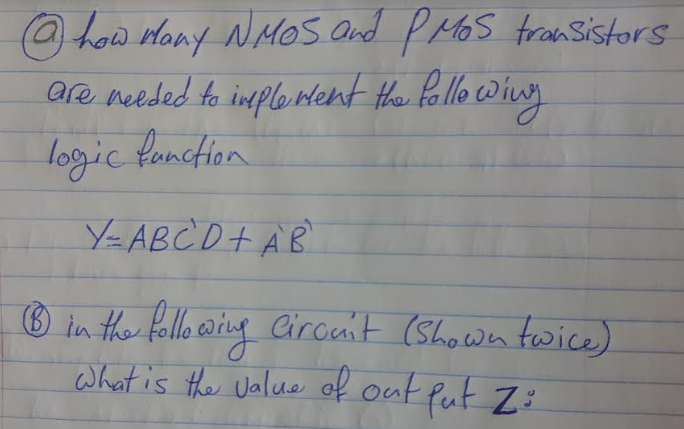 (a) how Many NMOS and PMOS transistors
are needed to implement the following
logic function
Y=ABC'D+A'B'
(B) in the following Circuit (Shown twice)
What is the value of out put Z: